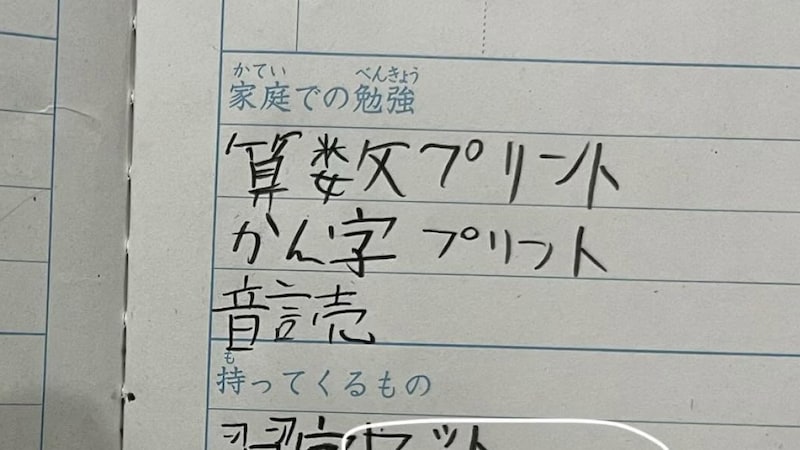 かてい べんきょう
家庭での勉強
算数プリント
かん字 プリント
音読
も
持ってくるもの
習字セット